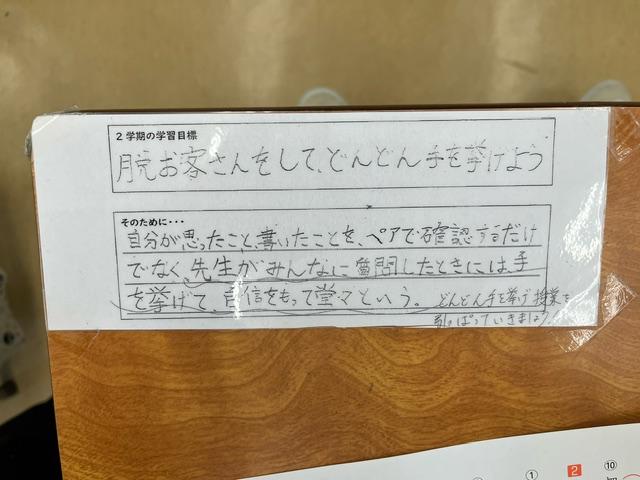 2学期の学習目標
脱お客さんをして、どんどん手を挙げよう
そのために・・・
自分が思ったこと、書いたことを、ペアで確認するだけ
でなく、先生がみんなに質問したときには手
を挙げて、自信をもって堂々という。どんどん手を挙げ授業を
引っぱっていきましょう!
① 2 ⑩